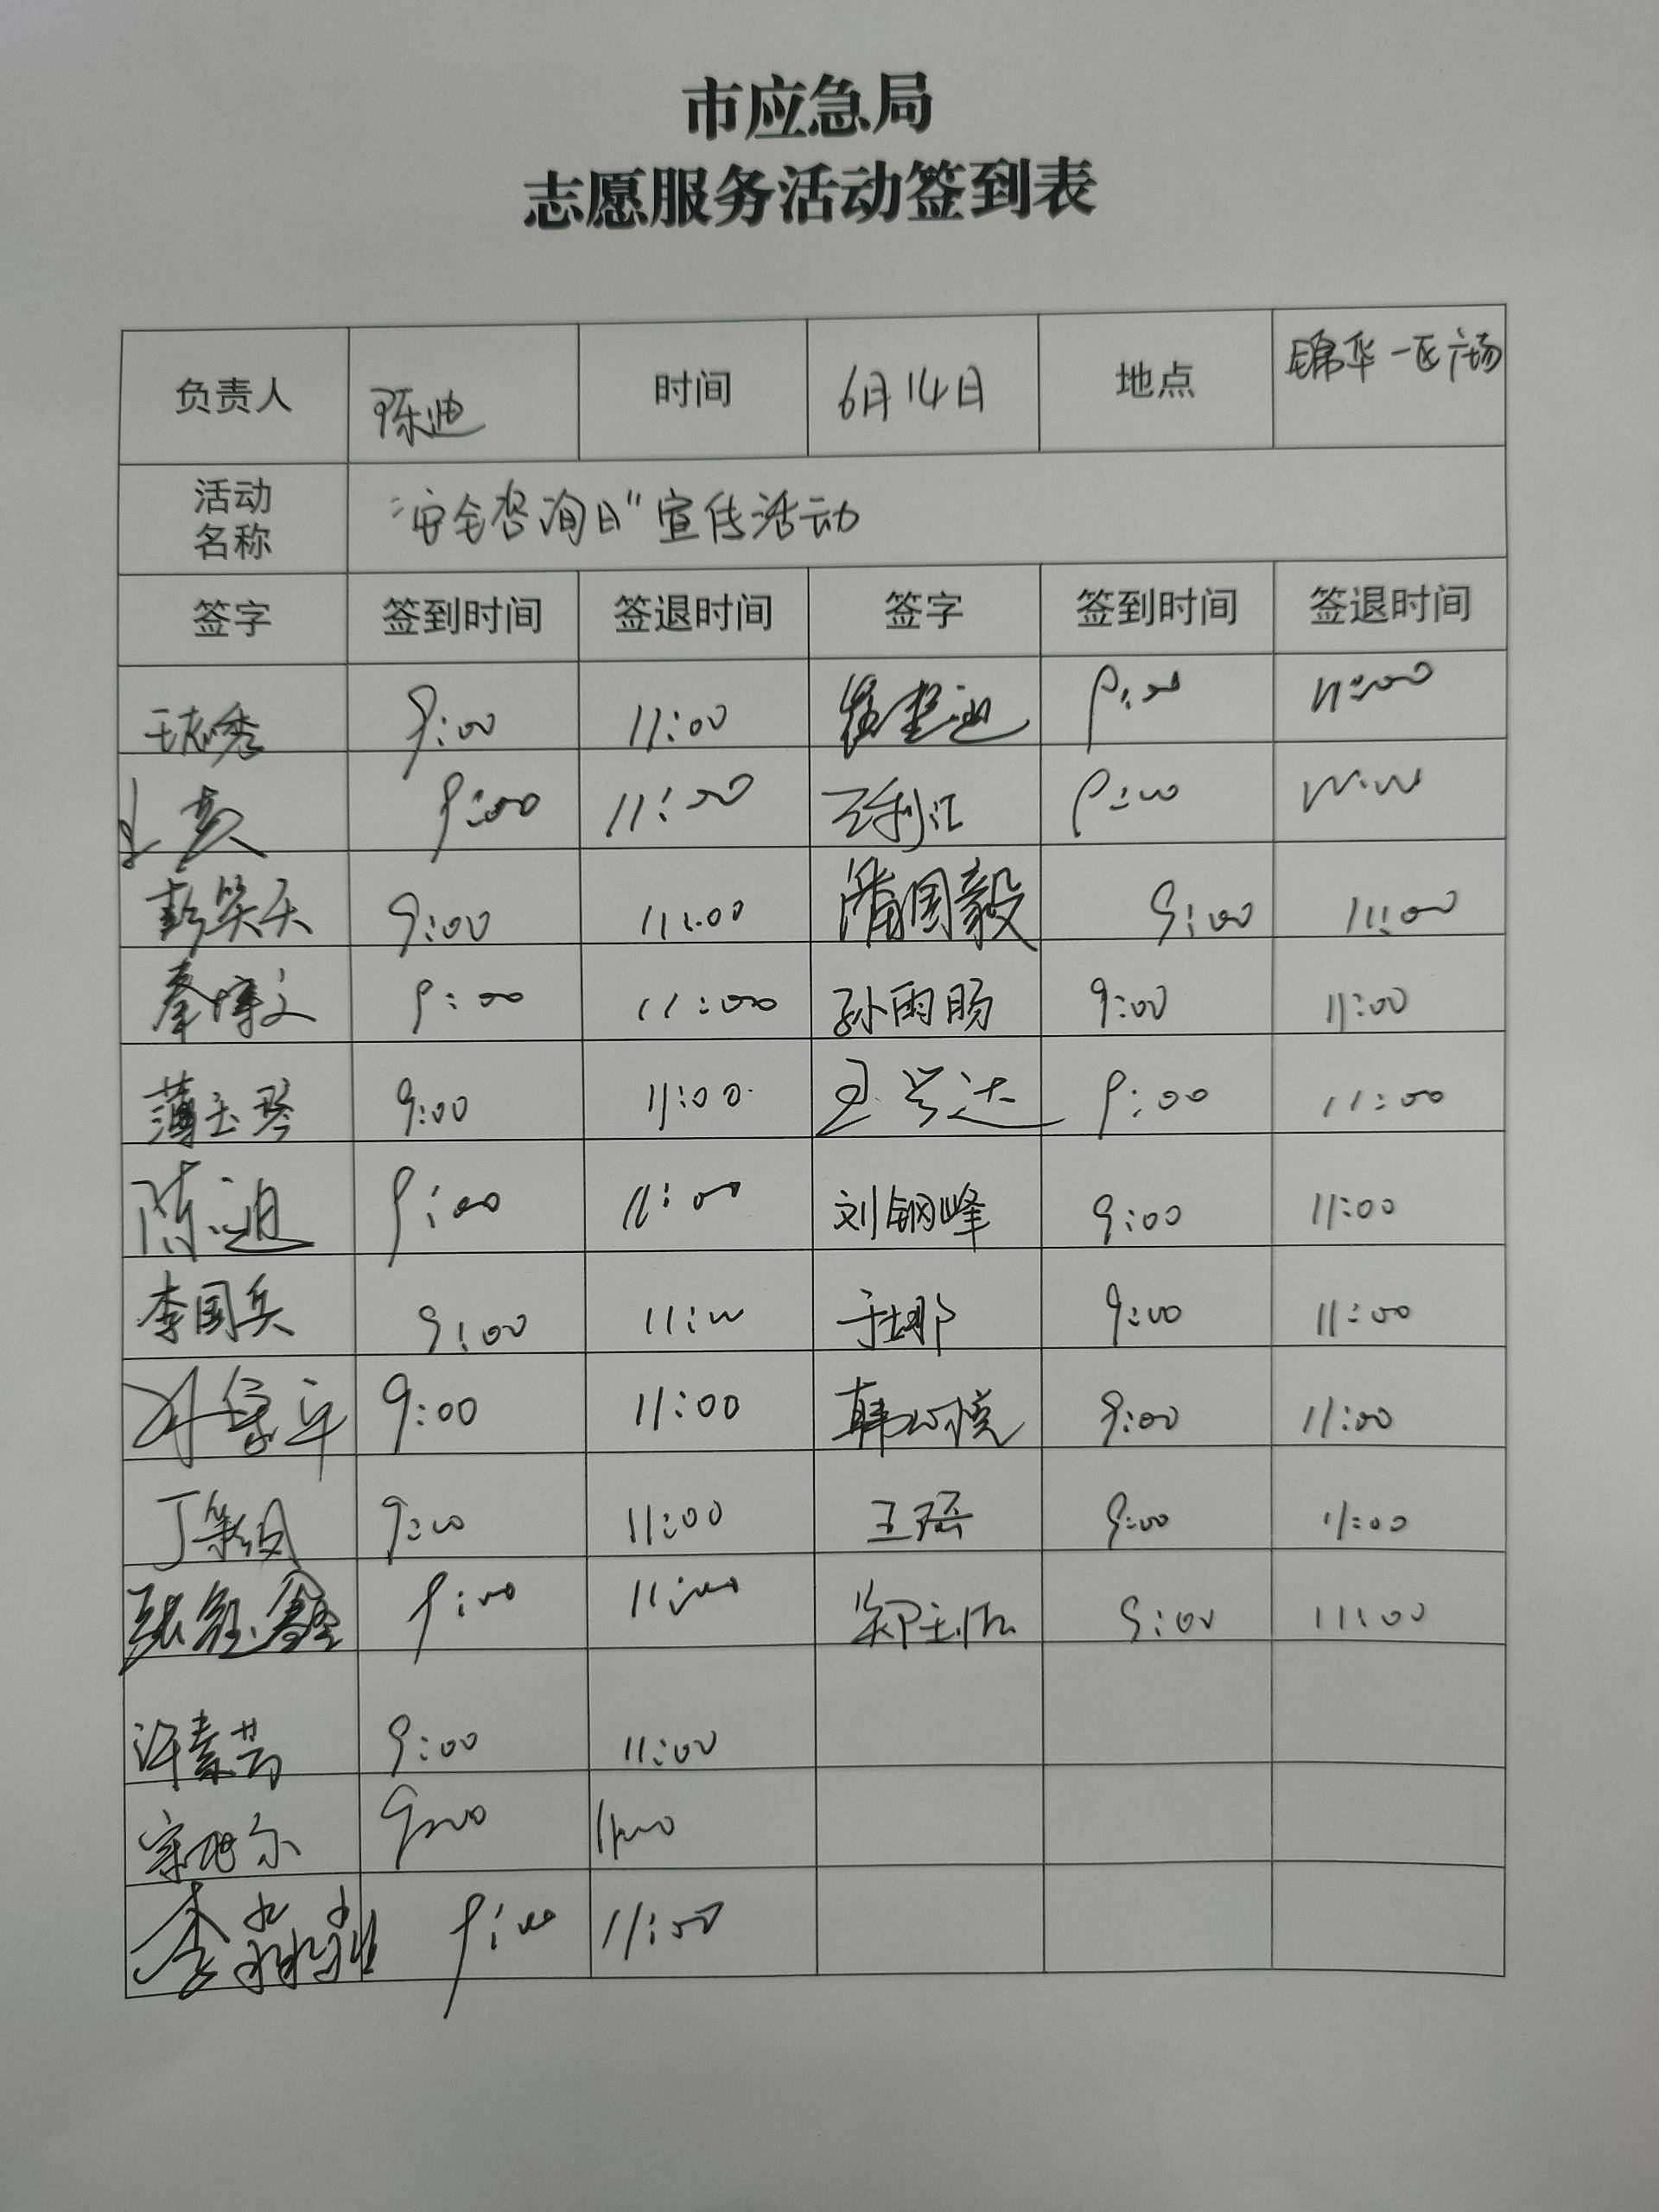 市应急局
志愿服务活动签到表
负责人 陈迪 时间 6月14日 地点 锦华一区广场
活动
名称
"安全咨询日"宣传活动
签字 签到时间 签退时间 签字 签到时间 签退时间
9:00 11:00 9:00 11:00
9:00 11:00 王利江 9:00 11:00
彭笑天 9:00 11:00 潘国毅 9:00 11:00
秦博文 9:00 11:00 孙雨肠 9:00 11:00
薄玉琴 9:00 11:00 王兴达 9:00 11:00
陈迪 9:00 11:00 刘钢峰 9:00 11:00
李国兵 9:00 11:00 于娜 9:00 11:00
9:00 11:00 韩心悦 9:00 11:00
丁 9:00 11:00 王瑶 9:00 11:00
张钰鑫 9:00 11:00 郑 9:00 11:00
许素芳 9:00 11:00
宋旭东 9:00 11:00
李淼 9:00 11:00